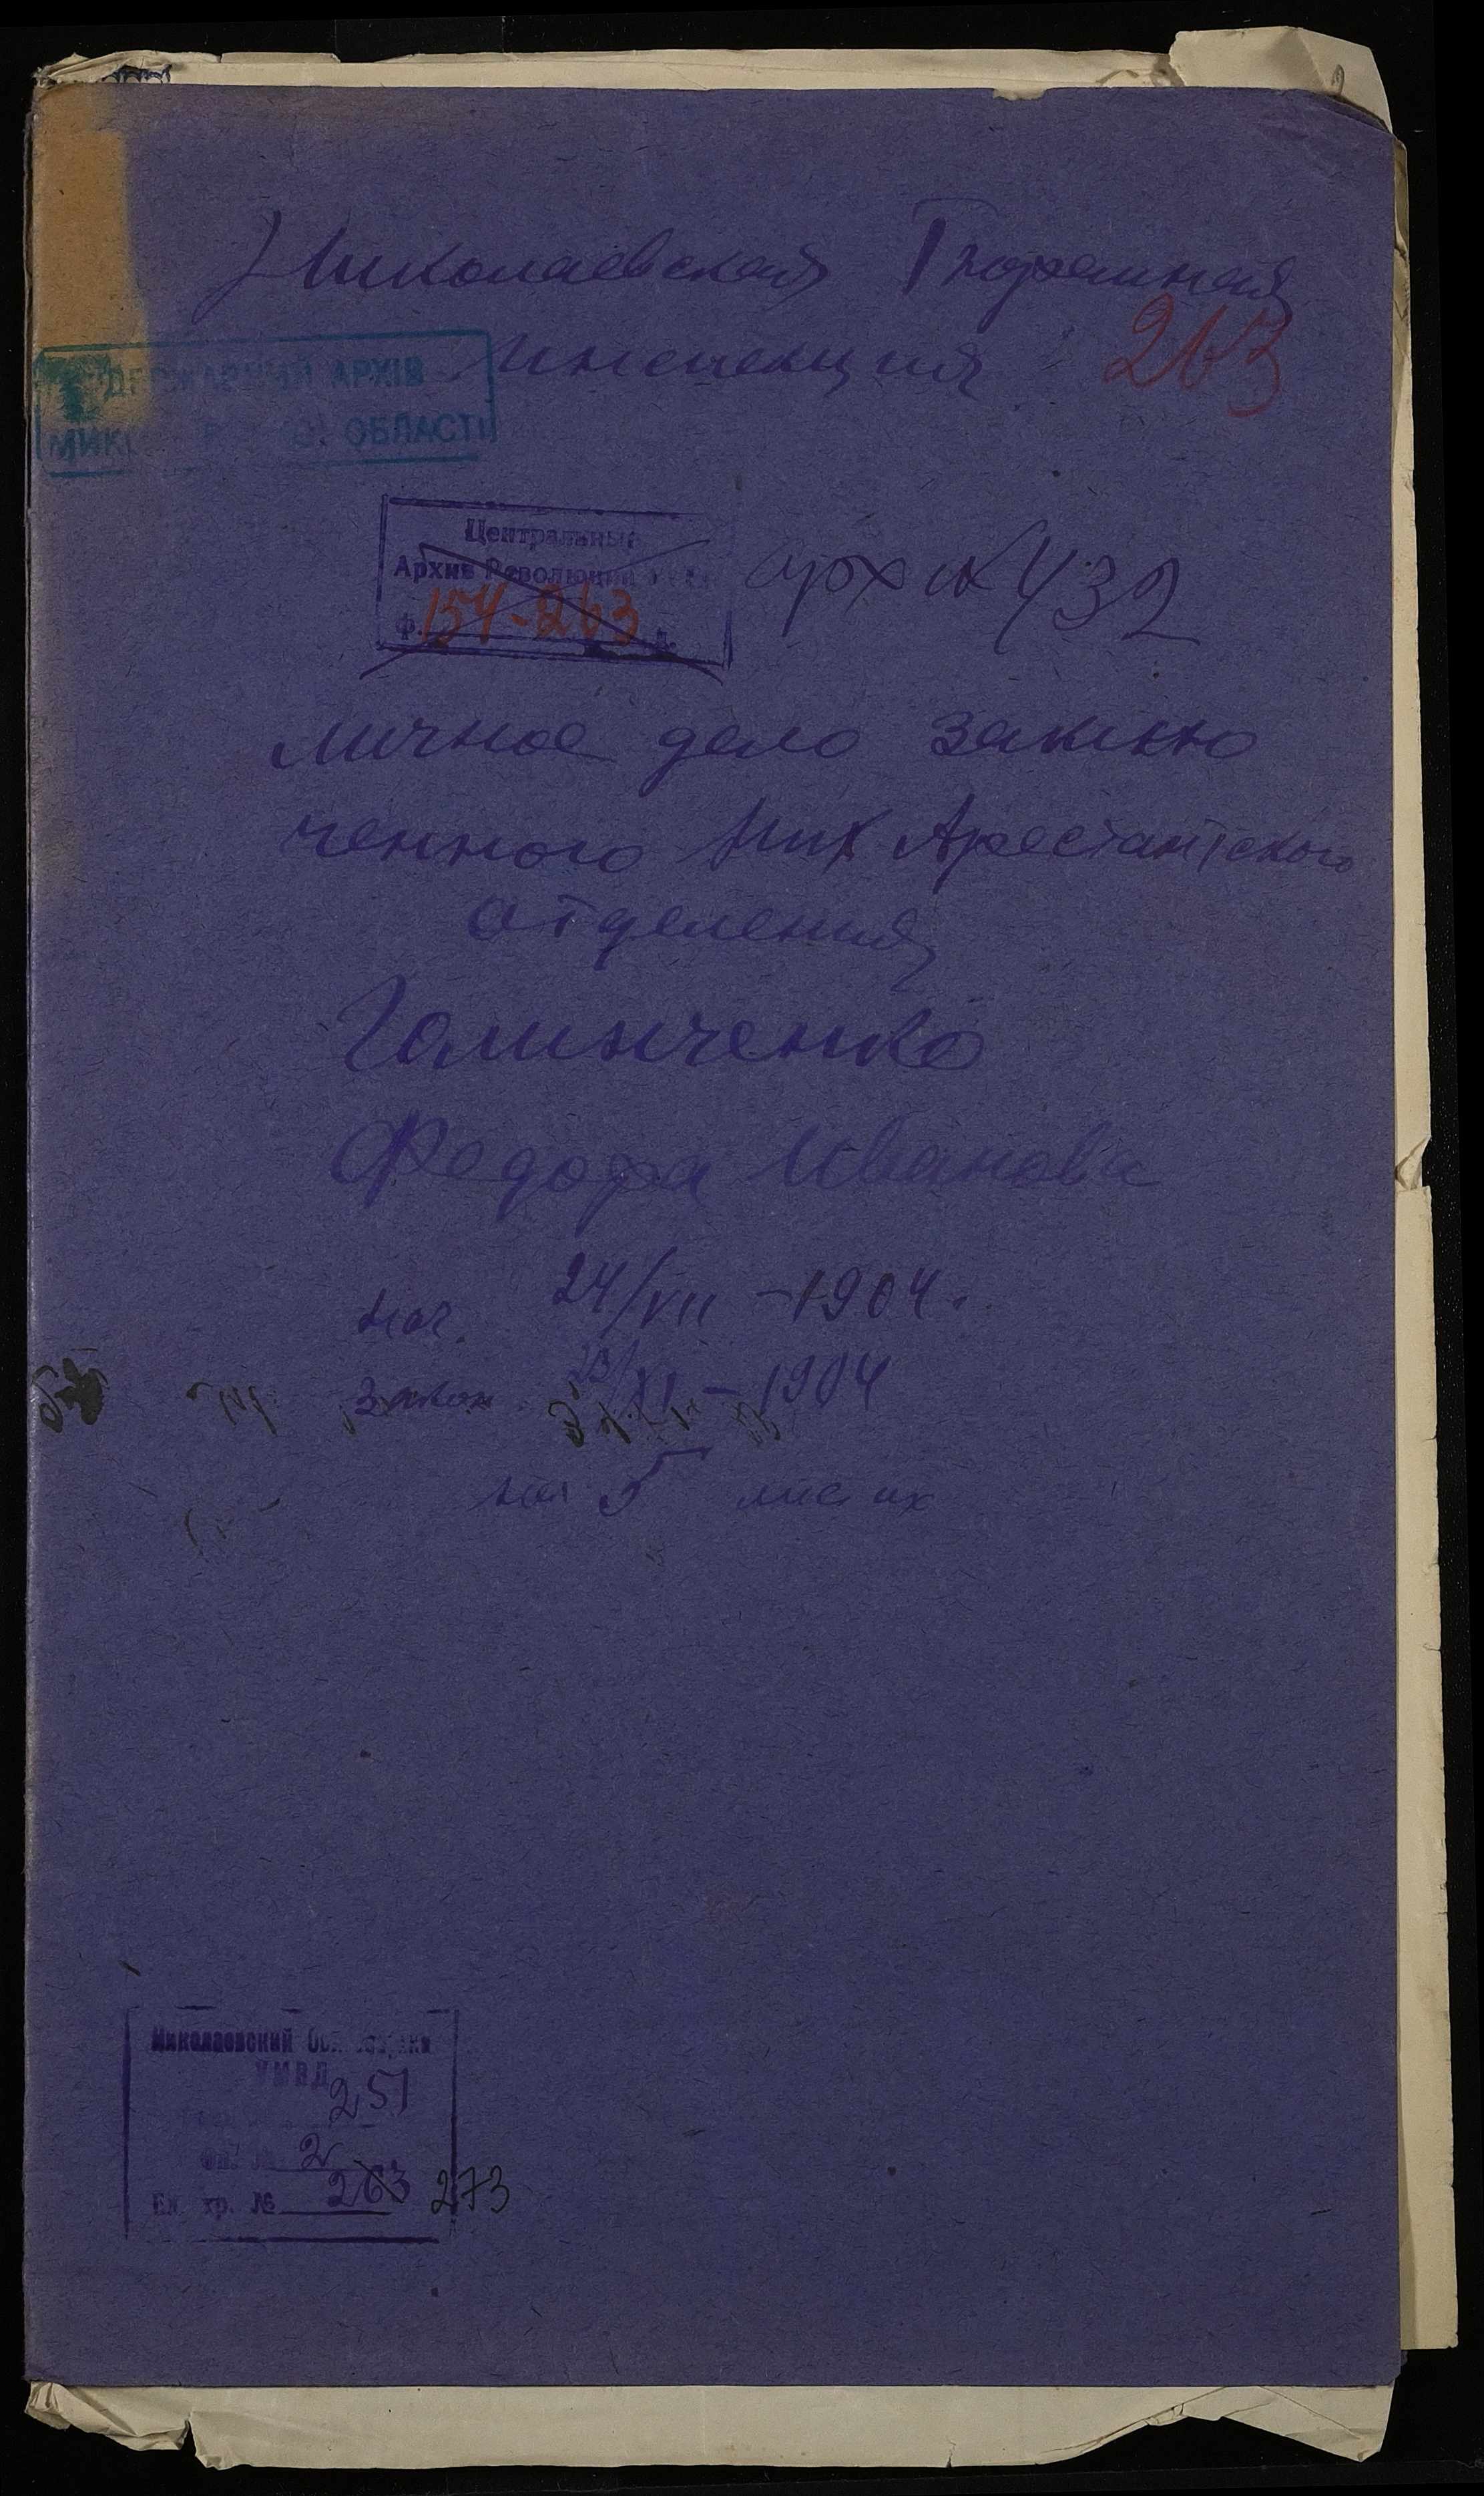 Николаевская Тюремная
инспекция 263
ДЕРЖАВНИЙ АРХІВ
ОБЛАСТІ
Центральный
Архив Революции
ф. 154-263 д.
арх № 432
личное дело заклю
ченного Ник Арестантского
отделения
Голинченко
Федора Иванова
нач. 24/VII - 1904.
закон. 23/XI - 1904
на 5 листах
Николаевский
УМВД
251
оп. № 2
Ед. хр. № 263 273